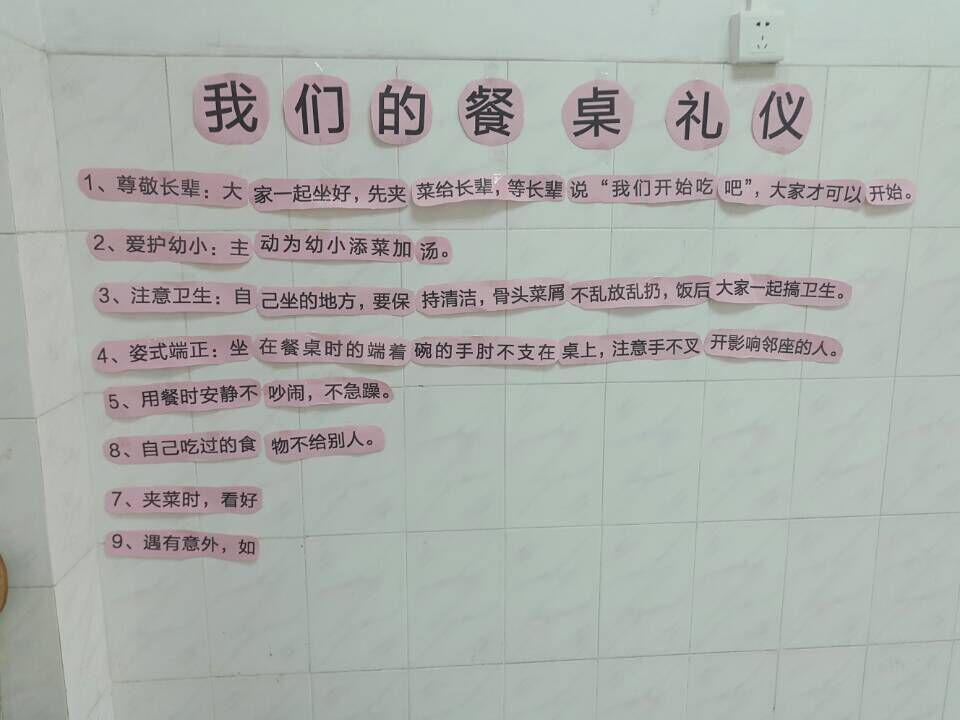 我们的餐桌礼仪
1、尊敬长辈：大家一起坐好，先夹菜给长辈，等长辈说“我们开始吃吧”，大家才可以开始。
2、爱护幼小：主动为幼小添菜加汤。
3、注意卫生：自己坐的地方，要保持清洁，骨头菜屑不乱放乱扔，饭后大家一起搞卫生。
4、姿式端正：坐在餐桌时的端着碗的手肘不支在桌上，注意手不叉开影响邻座的人。
5、用餐时安静不吵闹，不急躁。
8、自己吃过的食物不给别人。
7、夹菜时，看好
9、遇有意外，如